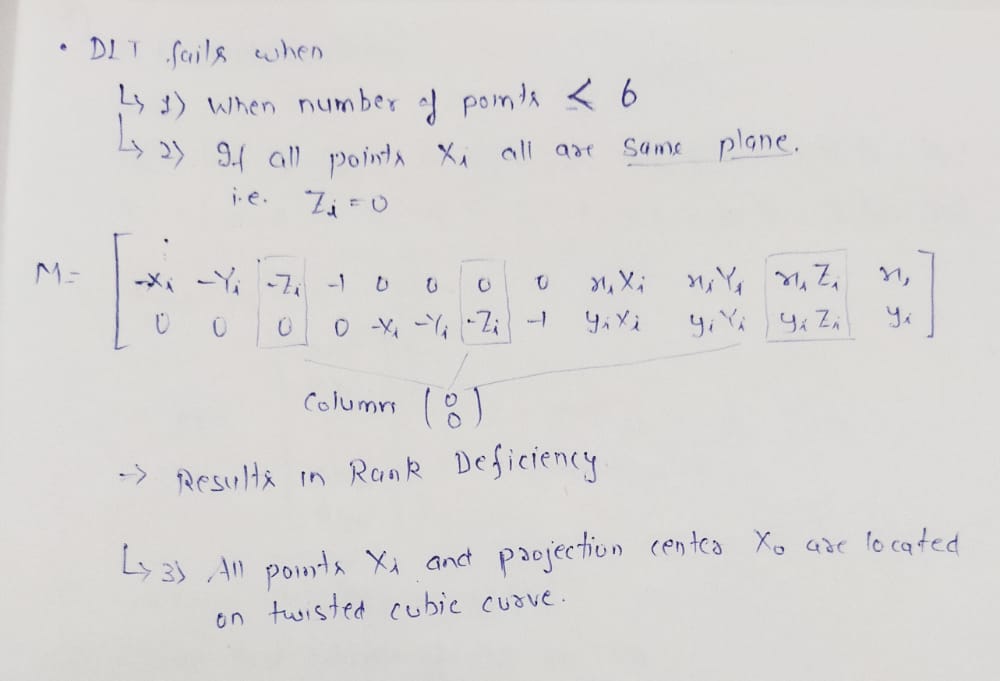 • DLT fails when
↳ 1) When number of points < 6
↳ 2) If all points Xi all are same plane.
i.e. Zi = 0
M = [ -Xi -Yi -Zi -1 0 0 0 0 xiXi xiYi xiZi xi
0 0 0 0 -Xi -Yi -Zi -1 yiXi yiYi yiZi yi ]
Columns (0 0)
-> Results in Rank Deficiency
↳ 3) All points Xi and projection center Xo are located
on twisted cubic curve.